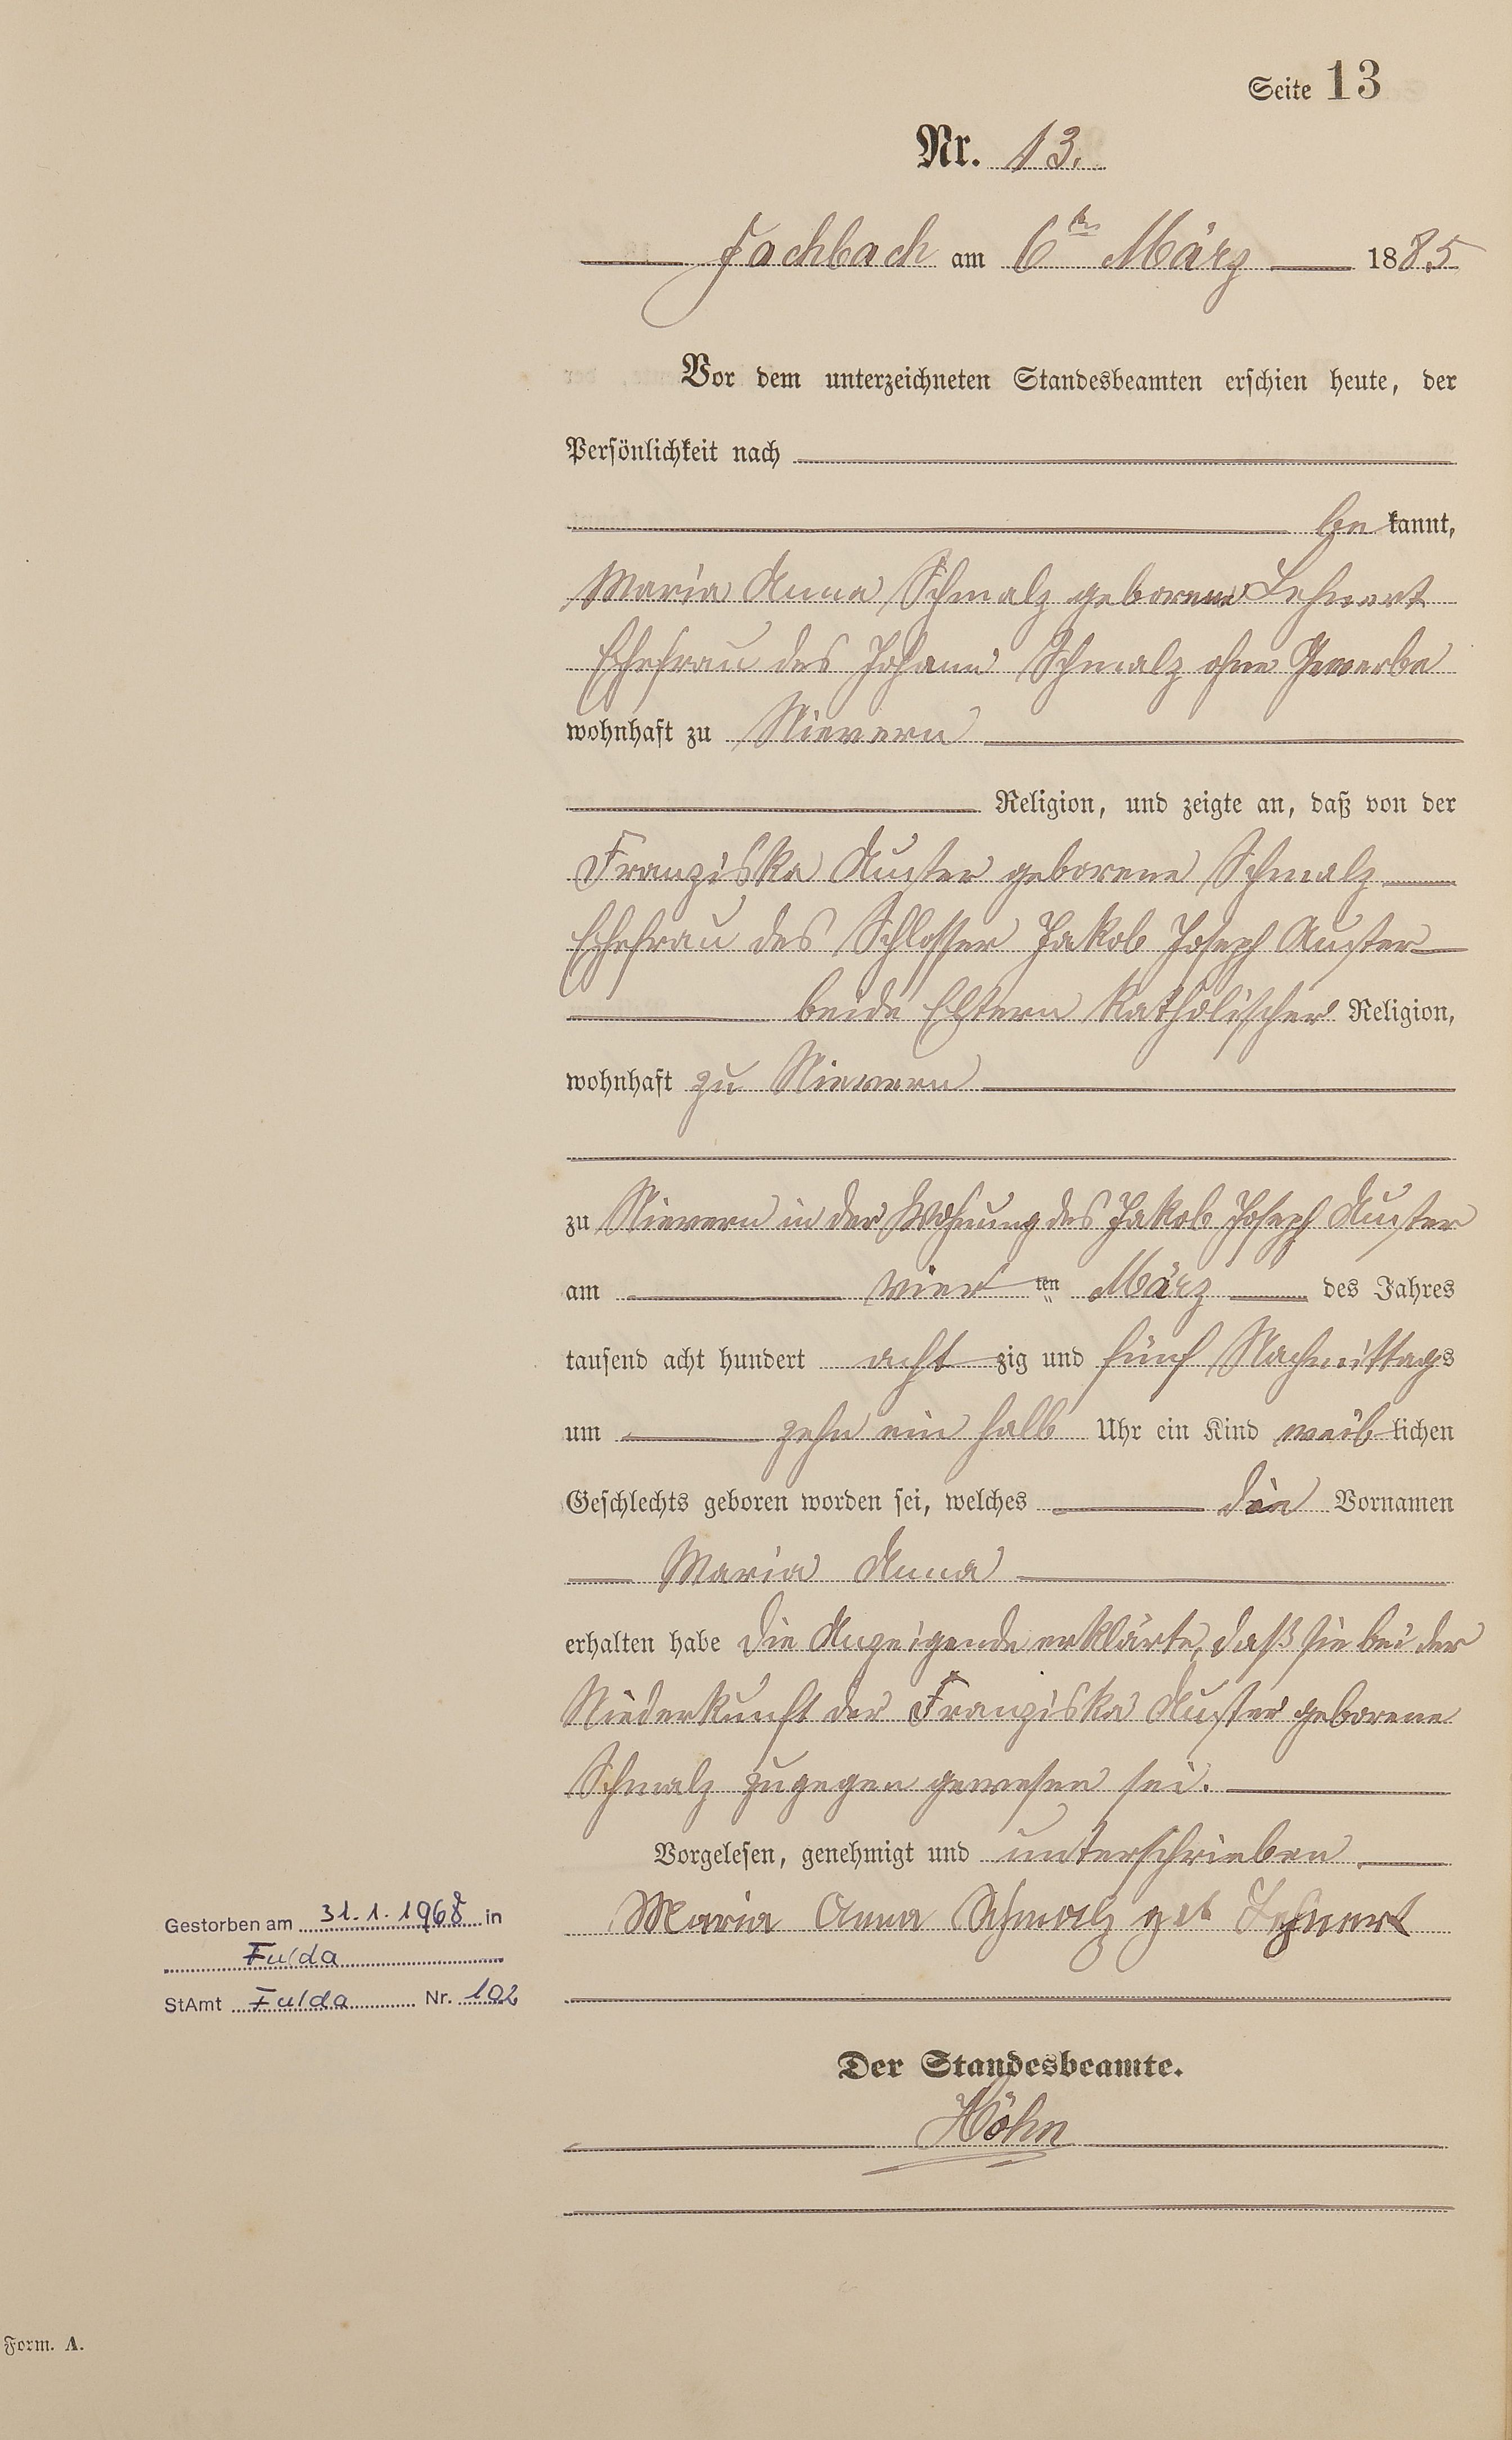 Seite 13
Nr. 13.
Fachbach am 6ten März 1885
Vor dem unterzeichneten Standesbeamten erschien heute, der
Persönlichkeit nach
bekannt,
Maria Anna Schmalz geborene Lehnert
Ehefrau des Johann Schmalz ohne Gewerbe
wohnhaft zu Nievern
Religion, und zeigte an, daß von der
Franziska Auster geborene Schmalz
Ehefrau des Schlosser Jakob Joseph Auster
beide Eltern katholischer Religion,
wohnhaft zu Nievern
zu Nievern in der Wohnung des Jakob Joseph Auster
am vier ten März des Jahres
tausend acht hundert acht zig und fünf Nachmittags
um zehn ein halb Uhr ein Kind weiblichen
Geschlechts geboren worden sei, welches die Vornamen
Maria Anna
erhalten habe Die Anzeigende erklärte, daß sie bei der
Niederkunft der Franziska Auster geborene
Schmalz zugegen gewesen sei.
Vorgelesen, genehmigt und unterschrieben
Maria Anna Schmalz geb Lehnert
Der Standesbeamte.
Höhn
Gestorben am 31.1.1968 in
Fulda
StAmt Fulda Nr. 102
Form. A.